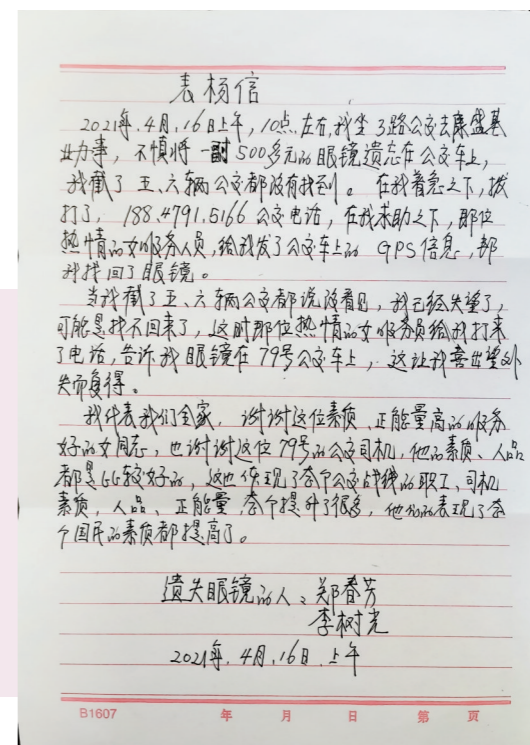 表杨信
2021年.4月.16日上午,10点左右,我坐3路公交去康盛基
业办事,不慎将一副500多元的眼镜遗忘在公交车上,
我截了五、六辆公交都没有找到。在我着急之下,拨
打了,188.4791.5166公交电话,在我求助之下,那位
热情的女服务人员,给我发了公交车上的GPS信息,帮
我找回了眼镜。
当我截了五、六辆公交都说没看见,我已经失望了,
可能是找不回来了,这时那位热情的女服务员给我打来
了电话,告诉我眼镜在79号公交车上,这让我喜出望外
失而复得。
我代表我们全家,谢谢这位素质、正能量高的服务
好的女同志,也谢谢这位79号的公交司机,他的素质、人品
都是比较好的,这也体现了整个公交战线的职工、司机
素质,人品、正能量,整个提升了很多,他们的表现了整
个国民的素质都提高了。
遗失眼镜的人:郑春芳
李树光
2021年.4月.16日.上午
B1607 年 月 日 第 页